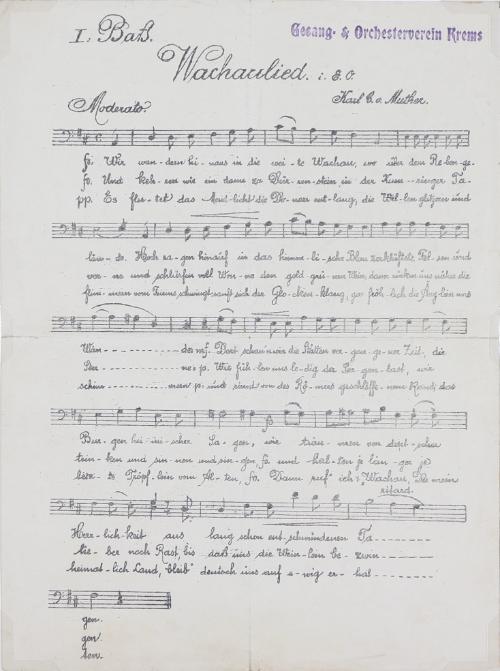 I. Baß.
Gesang- & Orchesterverein Krems
Wachaulied. i. 8. o.
Karl C. v. Muther.
Moderato.
fo. Wir wan-dern hi-naus in die wei-te Wachau, wo über dem Re-ben-ge-
fo. Und keh-ren wir ein dann zu Dür-ren-stein in der Kuen-ringer Ta-
pp. Es flu-tet das Mondlicht die Do-nau ent-lang, die Wel-len glitzern und
län-de. Hoch ra-gen hinauf in das himm-li-sche Blau zerklüftete Fel-sen und
ver-ne und schlürfen voll Won-ne den gold-grü-nen Wein, dann winken uns die
flim-mern vom Turme schwingt sanft sich der Glo-cken-klang, gar fröh-lich die
Wän - - - de. mf. Dort schau'n wir die Stätten ver-gan-ge-ner Zeit, die
Ster - - - ne. p. Wir füh-len uns le-dig der Sor-gen-last, wir
schim - - - mern p. und sind von des
Bur-gen hei-mi-scher Sa-gen, wir träu-men von
trin-ken und sin-nen und sin-gen, fo. und hal-ten je län-ger je
Tröpf-lein vom Al-ten, fo. Dann ruf' ich: "Wachau, Du mein
ritard.
Herr-lich-keit aus lang schon ent-schwundenen Ta - - -
lie-ber noch Rast, bis daß uns die Wein-lein be-zwin - - -
heimat-lich Land, "bleib" deutsch uns auf e-wig er-hal - - -
gen.
gen.
ten.